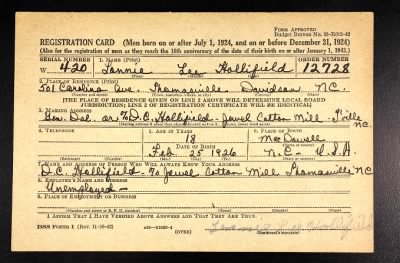 FORM APPROVED
Budget Bureau No. 33-R012-42
REGISTRATION CARD (Men born on or after July 1, 1924, and on or before December 31, 1924)
(Also for the registration of men as they reach the 18th anniversary of the date of their birth on or after January 1, 1943.)
SERIAL NUMBER 1. NAME (Print) ORDER NUMBER
W 420 Lonnie Lee Hollifield 12728
2. PLACE OF RESIDENCE (Print)
501 Carolina Ave. Thomasville Davidson N.C.
[THE PLACE OF RESIDENCE GIVEN ON LINE 2 ABOVE WILL DETERMINE LOCAL BOARD
JURISDICTION; LINE 2 OF REGISTRATION CERTIFICATE WILL BE IDENTICAL]
3. MAILING ADDRESS
Gen. Del. or % D.C. Hollifield - Jewel Cotton Mill - T'ville NC.
4. TELEPHONE 5. AGE IN YEARS 6. PLACE OF BIRTH
18 McDowell
DATE OF BIRTH
Feb. 25 1926 N.C. U.S.A
7. NAME AND ADDRESS OF PERSON WHO WILL ALWAYS KNOW YOUR ADDRESS
D.C. Hollifield - % Jewel Cotton Mill Thomasville NC
8. EMPLOYER'S NAME AND ADDRESS
Unemployed -
9. PLACE OF EMPLOYMENT OR BUSINESS
I AFFIRM THAT I HAVE VERIFIED ABOVE ANSWERS AND THAT THEY ARE TRUE.
DSS Form 1 (Rev. 11-16-42) (OVER) Hollifield